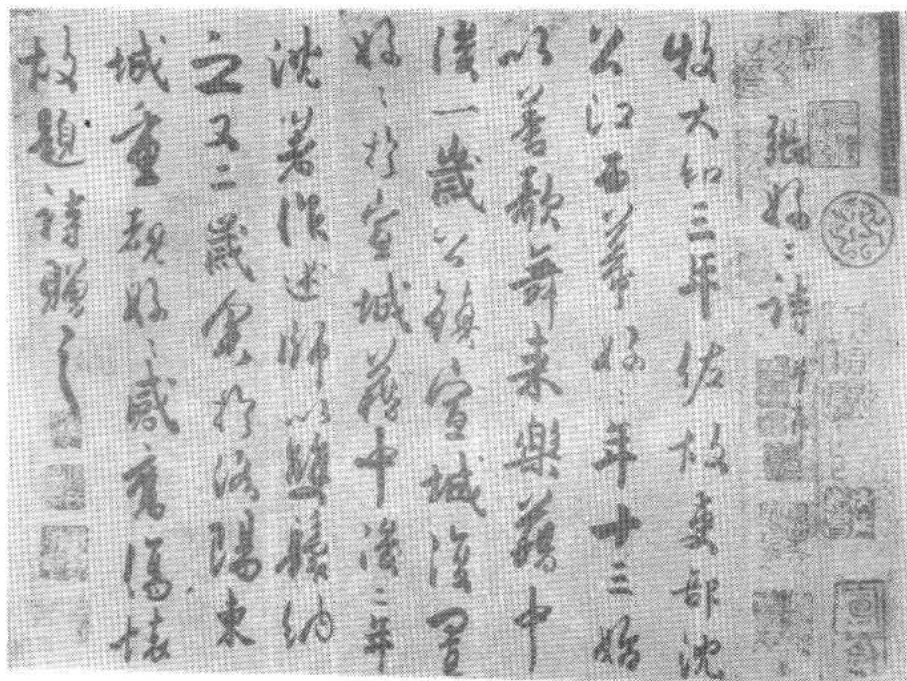 張好〻詩
牧大和三年佐故吏部沈
公江西幕好〻年十三始
以善歌舞来樂籍中
後一歲公鎮宣城復置
好〻於宣城籍中後二年
沈著作述師以雙鬟納
之又二歲余於洛陽東
城重覩好〻感舊傷懷
故題詩贈之